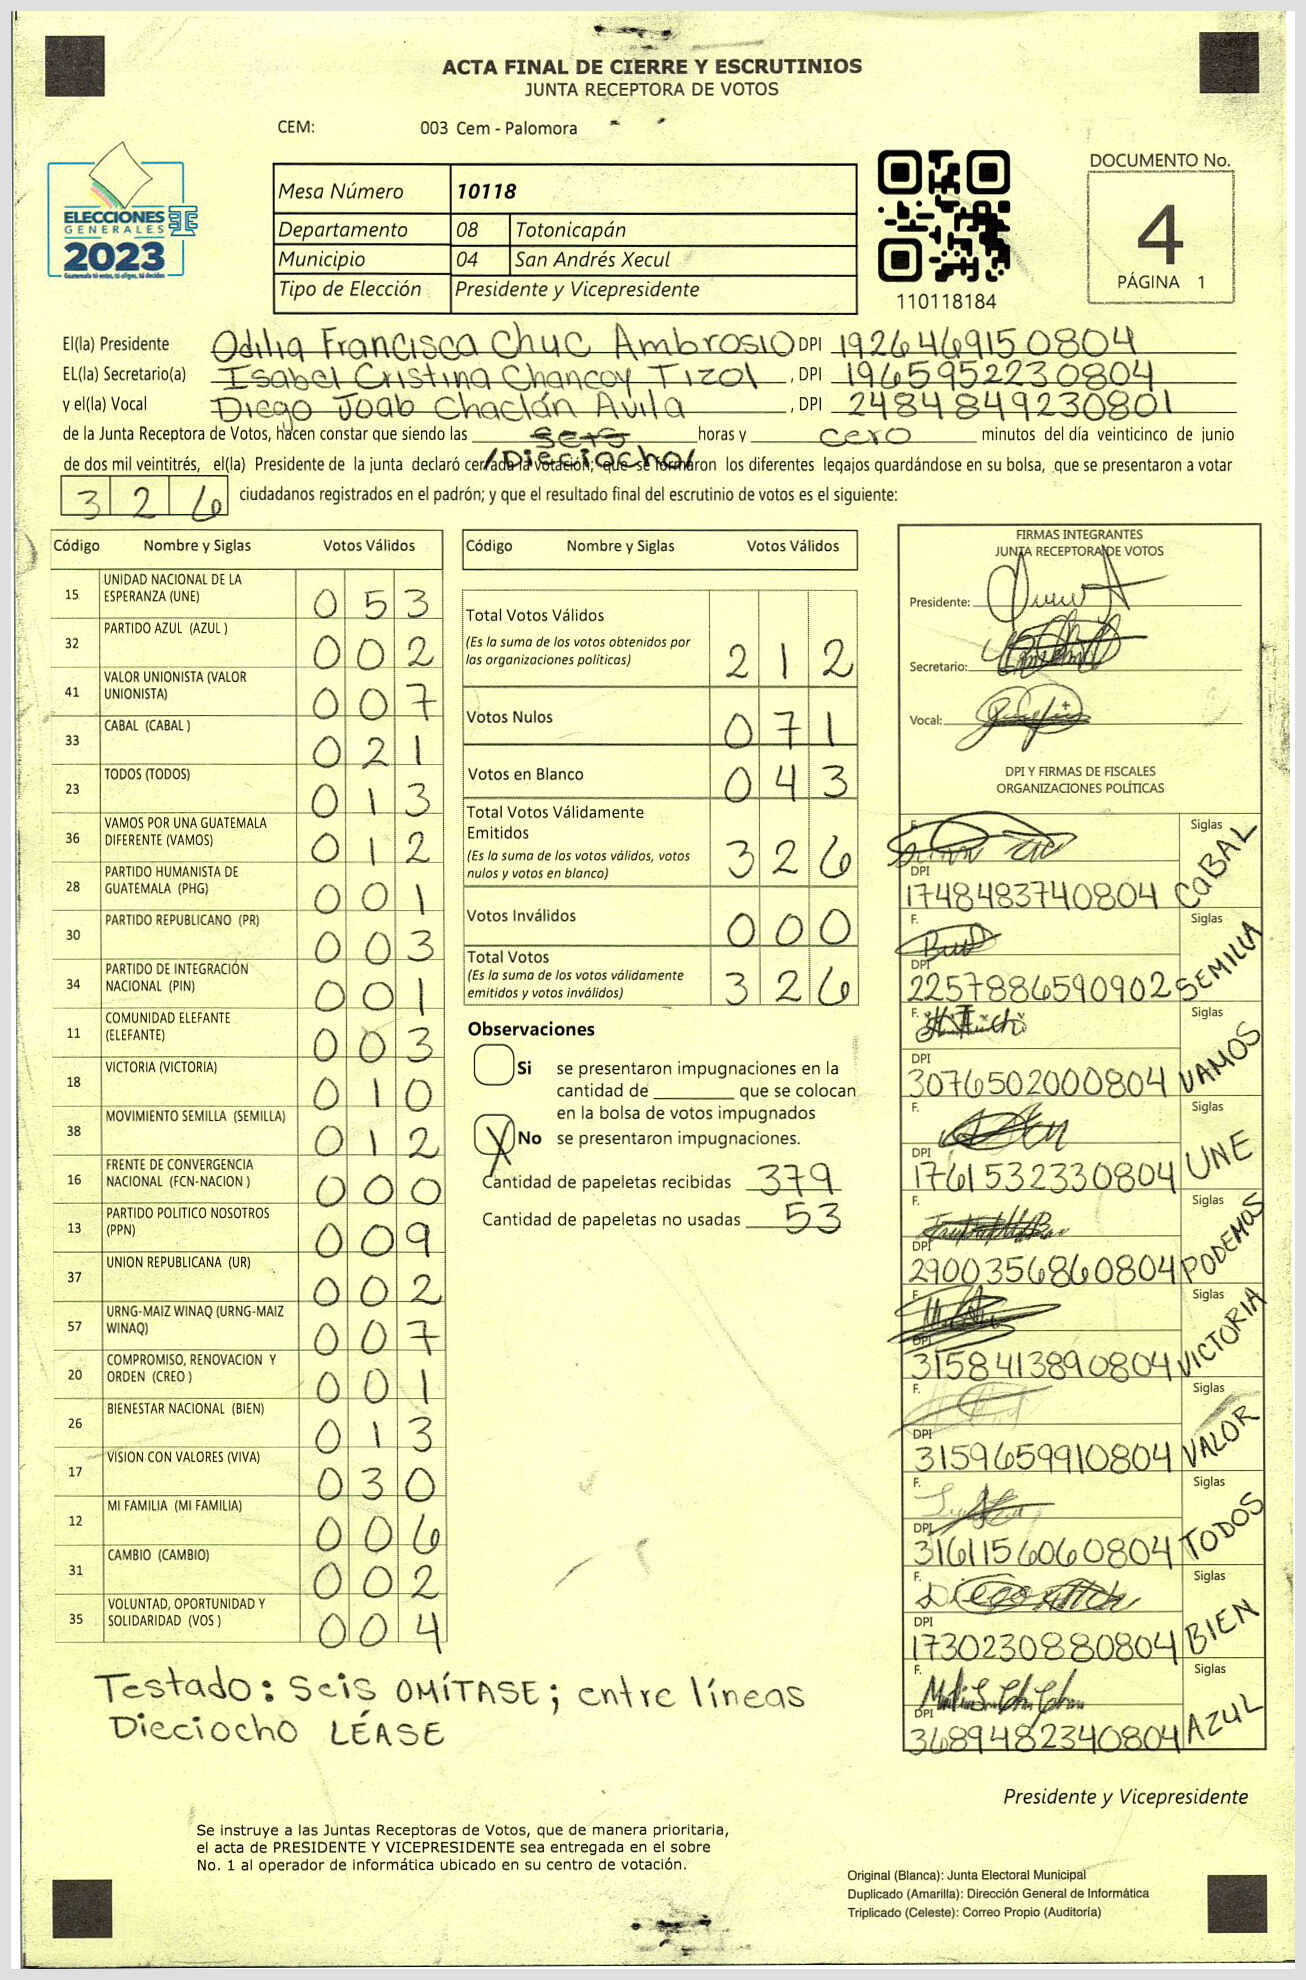 ACTA FINAL DE CIERRE Y ESCRUTINIOS
JUNTA RECEPTORA DE VOTOS
CEM: 003 Cem - Palomora
ELECCIONES
GENERALES
2023
Mesa Número 10118
Departamento 08 Totonicapán
Municipio 04 San Andrés Xecul
Tipo de Elección Presidente y Vicepresidente
110118184
DOCUMENTO No.
4
PÁGINA 1
El(la) Presidente Odilia Francisca Chuc Ambrosio DPI 1926469150804
EL(la) Secretario(a) Isabel Cristina Chancoy Tizol , DPI 1965952230804
y el(la) Vocal Diego Joab Chaclán Avila , DPI 2484849230801
de la Junta Receptora de Votos, hacen constar que siendo las seis horas y cero minutos del día veinticinco de junio
/Dieciocho/
de dos mil veintitrés, el(la) Presidente de la junta declaró cerrada la votación; que se formaron los diferentes legajos quardándose en su bolsa, que se presentaron a votar
326 ciudadanos registrados en el padrón; y que el resultado final del escrutinio de votos es el siguiente:
Código Nombre y Siglas Votos Válidos
15 UNIDAD NACIONAL DE LA ESPERANZA (UNE) 053
32 PARTIDO AZUL (AZUL ) 002
41 VALOR UNIONISTA (VALOR UNIONISTA) 007
33 CABAL (CABAL ) 021
23 TODOS (TODOS) 013
36 VAMOS POR UNA GUATEMALA DIFERENTE (VAMOS) 012
28 PARTIDO HUMANISTA DE GUATEMALA (PHG) 001
30 PARTIDO REPUBLICANO (PR) 003
34 PARTIDO DE INTEGRACIÓN NACIONAL (PIN) 001
11 COMUNIDAD ELEFANTE (ELEFANTE) 003
18 VICTORIA (VICTORIA) 010
38 MOVIMIENTO SEMILLA (SEMILLA) 012
16 FRENTE DE CONVERGENCIA NACIONAL (FCN-NACION ) 000
13 PARTIDO POLITICO NOSOTROS (PPN) 009
37 UNION REPUBLICANA (UR) 002
57 URNG-MAIZ WINAQ (URNG-MAIZ WINAQ) 007
20 COMPROMISO, RENOVACION Y ORDEN (CREO ) 001
26 BIENESTAR NACIONAL (BIEN) 013
17 VISION CON VALORES (VIVA) 030
12 MI FAMILIA (MI FAMILIA) 006
31 CAMBIO (CAMBIO) 002
35 VOLUNTAD, OPORTUNIDAD Y SOLIDARIDAD (VOS ) 004
Testado: Seis OMÍTASE; entre líneas
Dieciocho LÉASE
Código Nombre y Siglas Votos Válidos
Total Votos Válidos
(Es la suma de los votos obtenidos por las organizaciones políticas) 212
Votos Nulos 071
Votos en Blanco 043
Total Votos Válidamente Emitidos
(Es la suma de los votos válidos, votos nulos y votos en blanco) 326
Votos Inválidos 000
Total Votos
(Es la suma de los votos válidamente emitidos y votos inválidos) 326
Observaciones
Si se presentaron impugnaciones en la
cantidad de ________ que se colocan
en la bolsa de votos impugnados
X No se presentaron impugnaciones.
Cantidad de papeletas recibidas 379
Cantidad de papeletas no usadas 53
FIRMAS INTEGRANTES
JUNTA RECEPTORA DE VOTOS
Presidente:
Secretario:
Vocal:
DPI Y FIRMAS DE FISCALES
ORGANIZACIONES POLÍTICAS
F. Siglas
DPI
1748483740804 CABAL
F. Siglas
DPI
2257886590902 SEMILLA
F. Siglas
DPI
3076502000804 VAMOS
F. Siglas
DPI
1761532330804 UNE
F. Siglas
DPI
2900356860804 PODEMOS
F. Siglas
DPI
3158413890804 VICTORIA
F. Siglas
DPI
3159659910804 VALOR
F. Siglas
DPI
3161156060804 TODOS
F. Siglas
DPI
1730230880804 BIEN
F. Siglas
DPI
3689482340804 AZUL
Presidente y Vicepresidente
Se instruye a las Juntas Receptoras de Votos, que de manera prioritaria,
el acta de PRESIDENTE Y VICEPRESIDENTE sea entregada en el sobre
No. 1 al operador de informática ubicado en su centro de votación.
Original (Blanca): Junta Electoral Municipal
Duplicado (Amarilla): Dirección General de Informática
Triplicado (Celeste): Correo Propio (Auditoría)